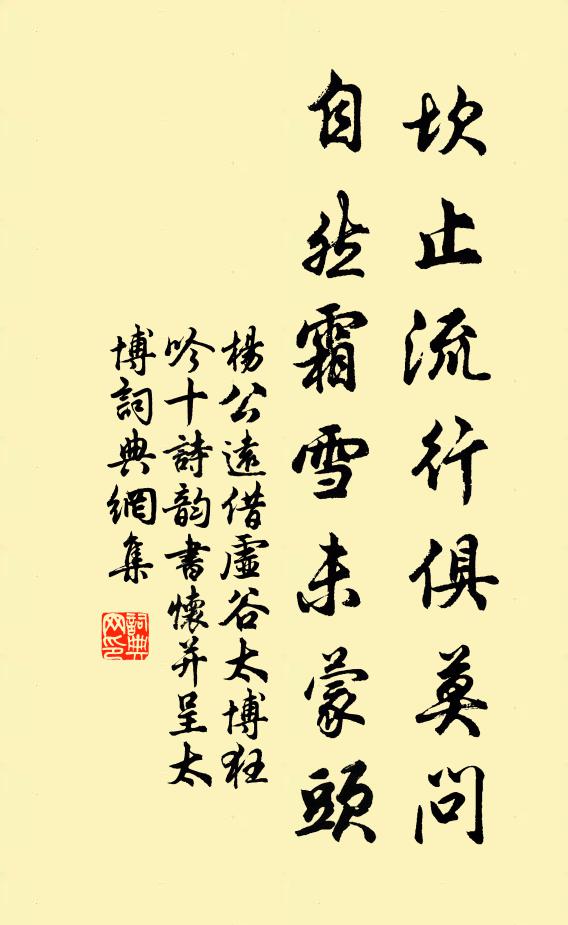 坎止流行俱莫問
自然霜雪未蒙頭
楊公遠借虛谷太博狂
吟十詩韵書懷并呈太
博詞典網集
詞典
网印